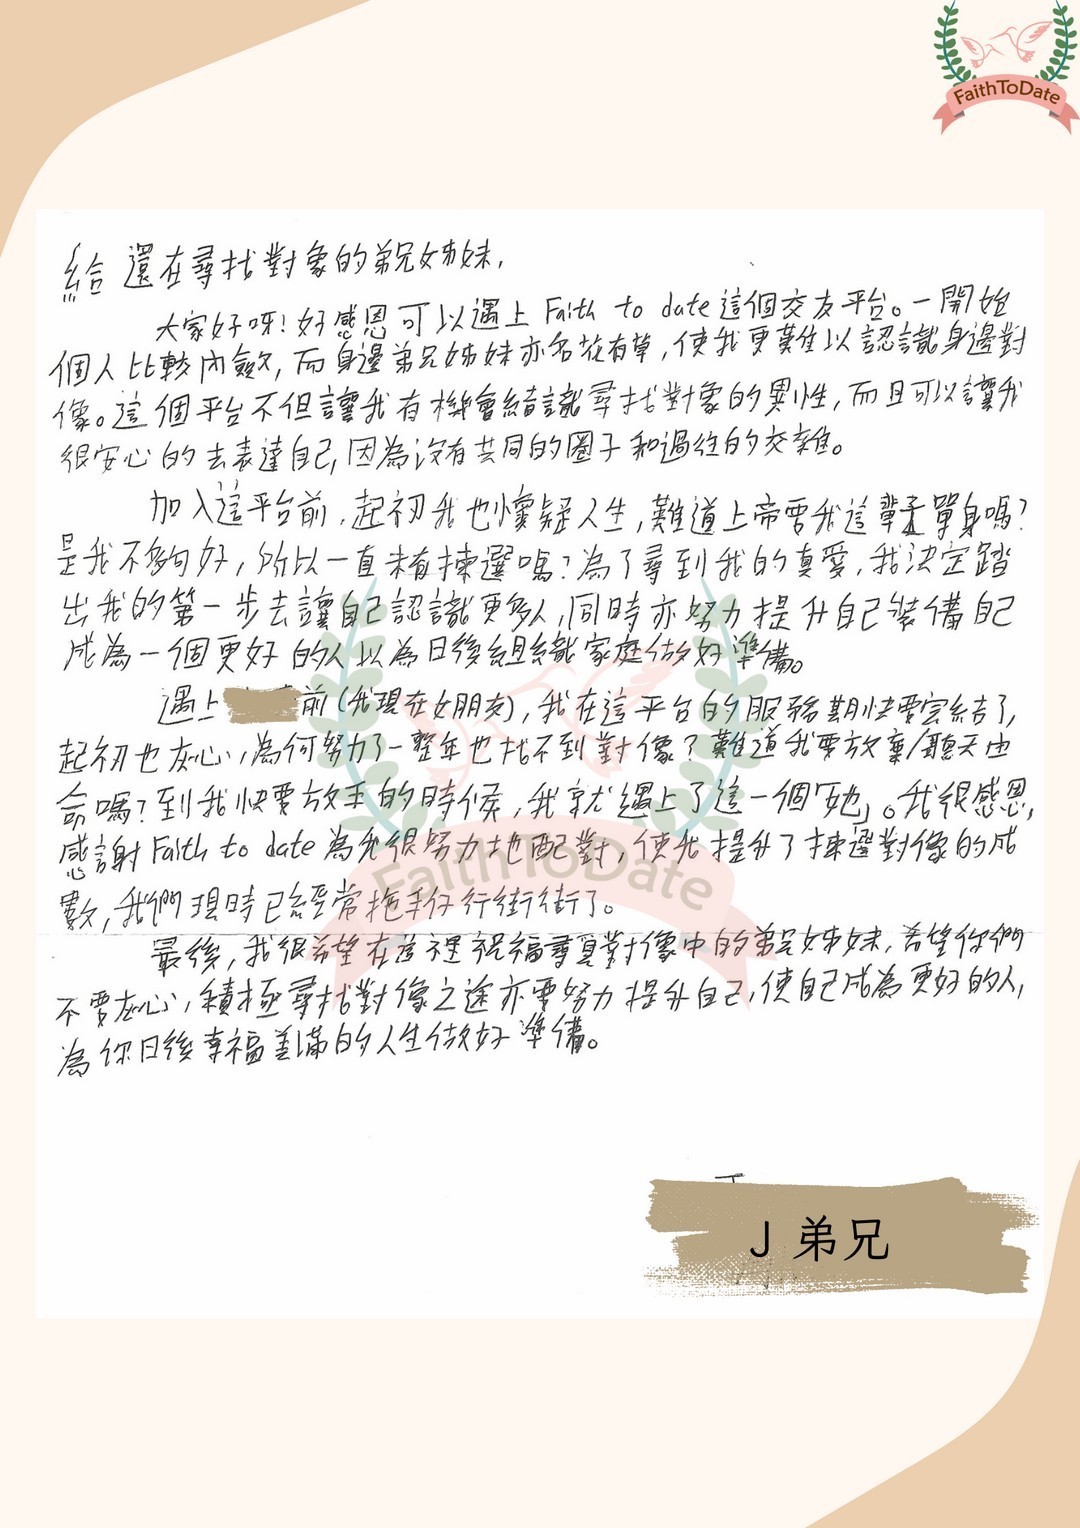 FaithToDate
給 還在尋找對象的弟兄姊妹,
大家好呀!好感恩可以遇上 Faith to date 這個交友平台。一開始
個人比較內斂,而身邊弟兄姊妹亦名花有草,使我更難以認識身邊對
像。這個平台不但讓我有機會結識尋找對象的異性,而且可以讓我
很安心的去表達自己,因為沒有共同的圈子和過往的交雜。
加入這平台前,起初我也懷疑人生,難道上帝要我這輩子單身嗎?
是我不夠好,所以一直未有揀選嗎?為了尋到我的真愛,我決定踏
出我的第一步去讓自己認識更多人,同時亦努力提升自己裝備自己
成為一個更好的人以為日後組織家庭做好準備。
遇上 前(我現在女朋友),我在這平台的服務期快要完結了,
起初也灰心,為何努力了一整年也找不到對像?難道我要放棄/聽天由
命嗎?到我快要放手的時候,我就遇上了這一個「她」。我很感恩,
感謝 Faith to date 為我很努力地配對,使我提升了揀選對像的成
數,我們現時已經常拖手仔行街街了。
最後,我很希望在這裡祝福尋覓對像中的弟兄姊妹,希望你們
不要灰心,積極尋找對像之途亦要努力提升自己,使自己成為更好的人,
為你日後幸福美滿的人生做好準備。
FaithToDate
J 弟兄